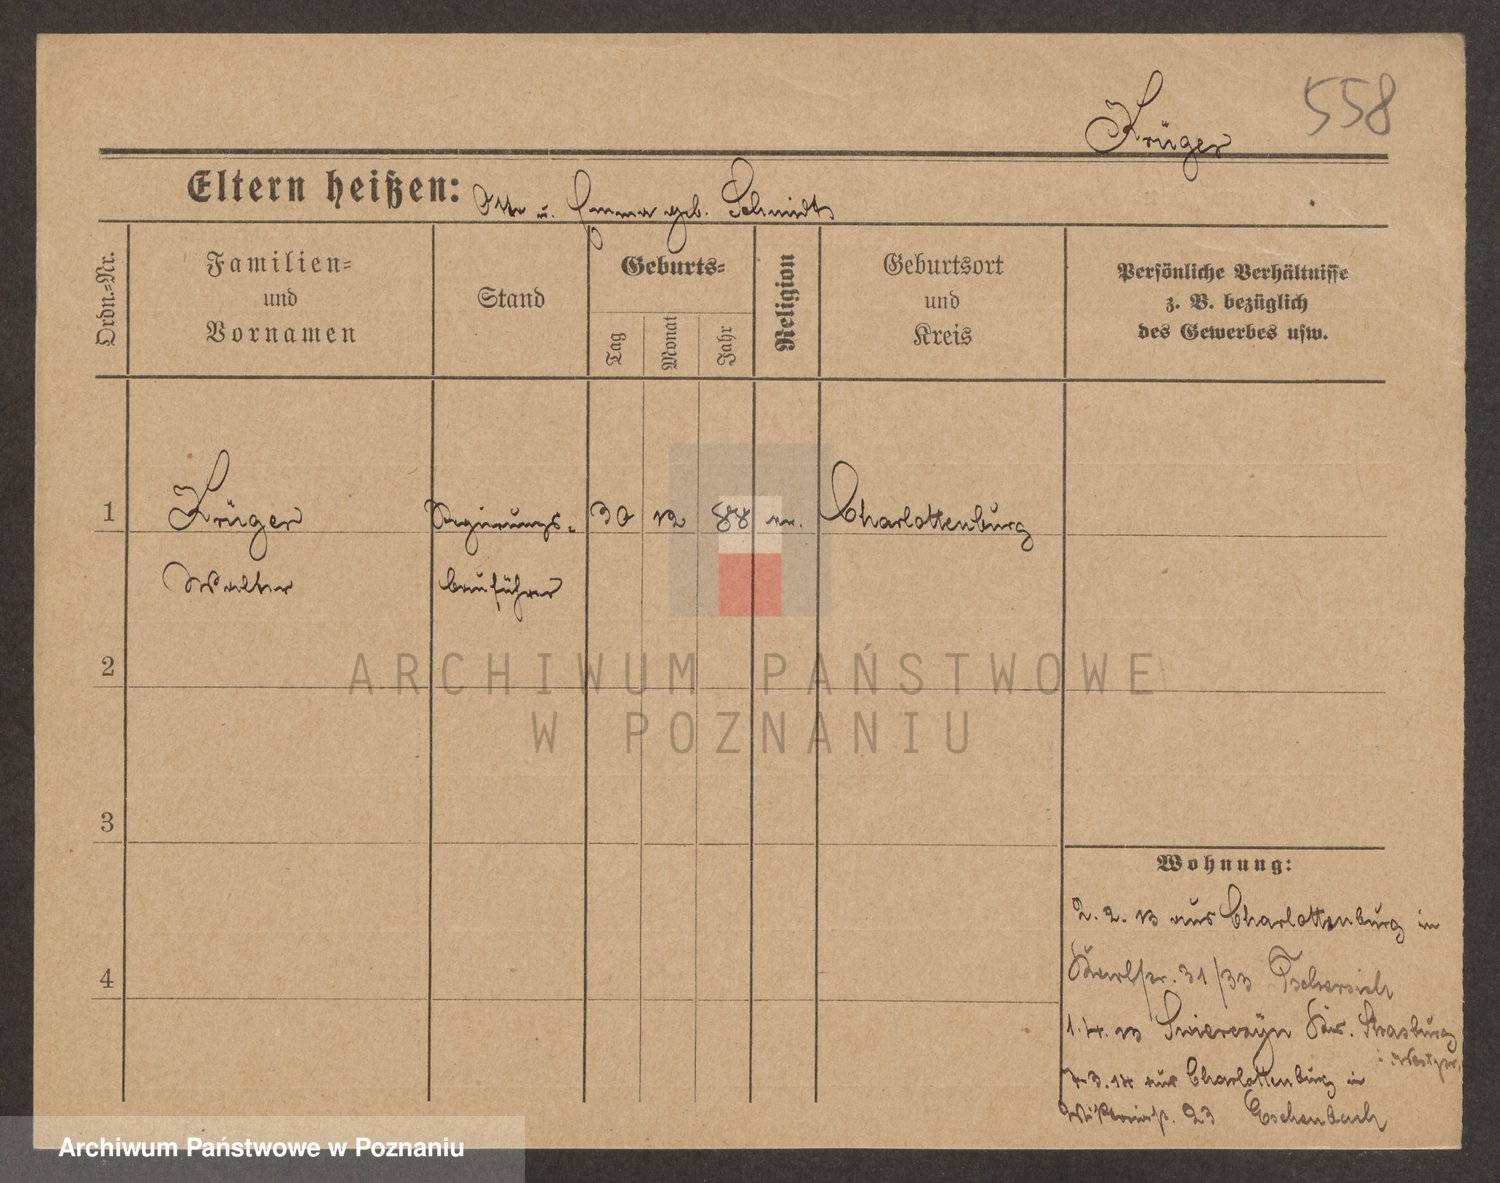 558
Krüger
Eltern heißen: Otto u. Emma geb. Schmidt
Ordn.=Nr.
Familien=
und
Vornamen
Stand
Geburts=
Tag
Monat
Jahr
Religion
Geburtsort
und
Kreis
Persönliche Verhältnisse
z. B. bezüglich
des Gewerbes usw.
1 Krüger Regierungs- 30 12 88 ev. Charlottenburg
Walter bauführer
2
ARCHIWUM PAŃSTWOWE
W POZNANIU
3
Wohnung:
2. 2. 13 aus Charlottenburg in
31/33 Tschersich
4
1. 4. 13 Swierczyn Kr. Strasburg
i. Westpr.
7. 3. 14 aus Charlottenburg in
23 Eschenbach
Archiwum Państwowe w Poznaniu